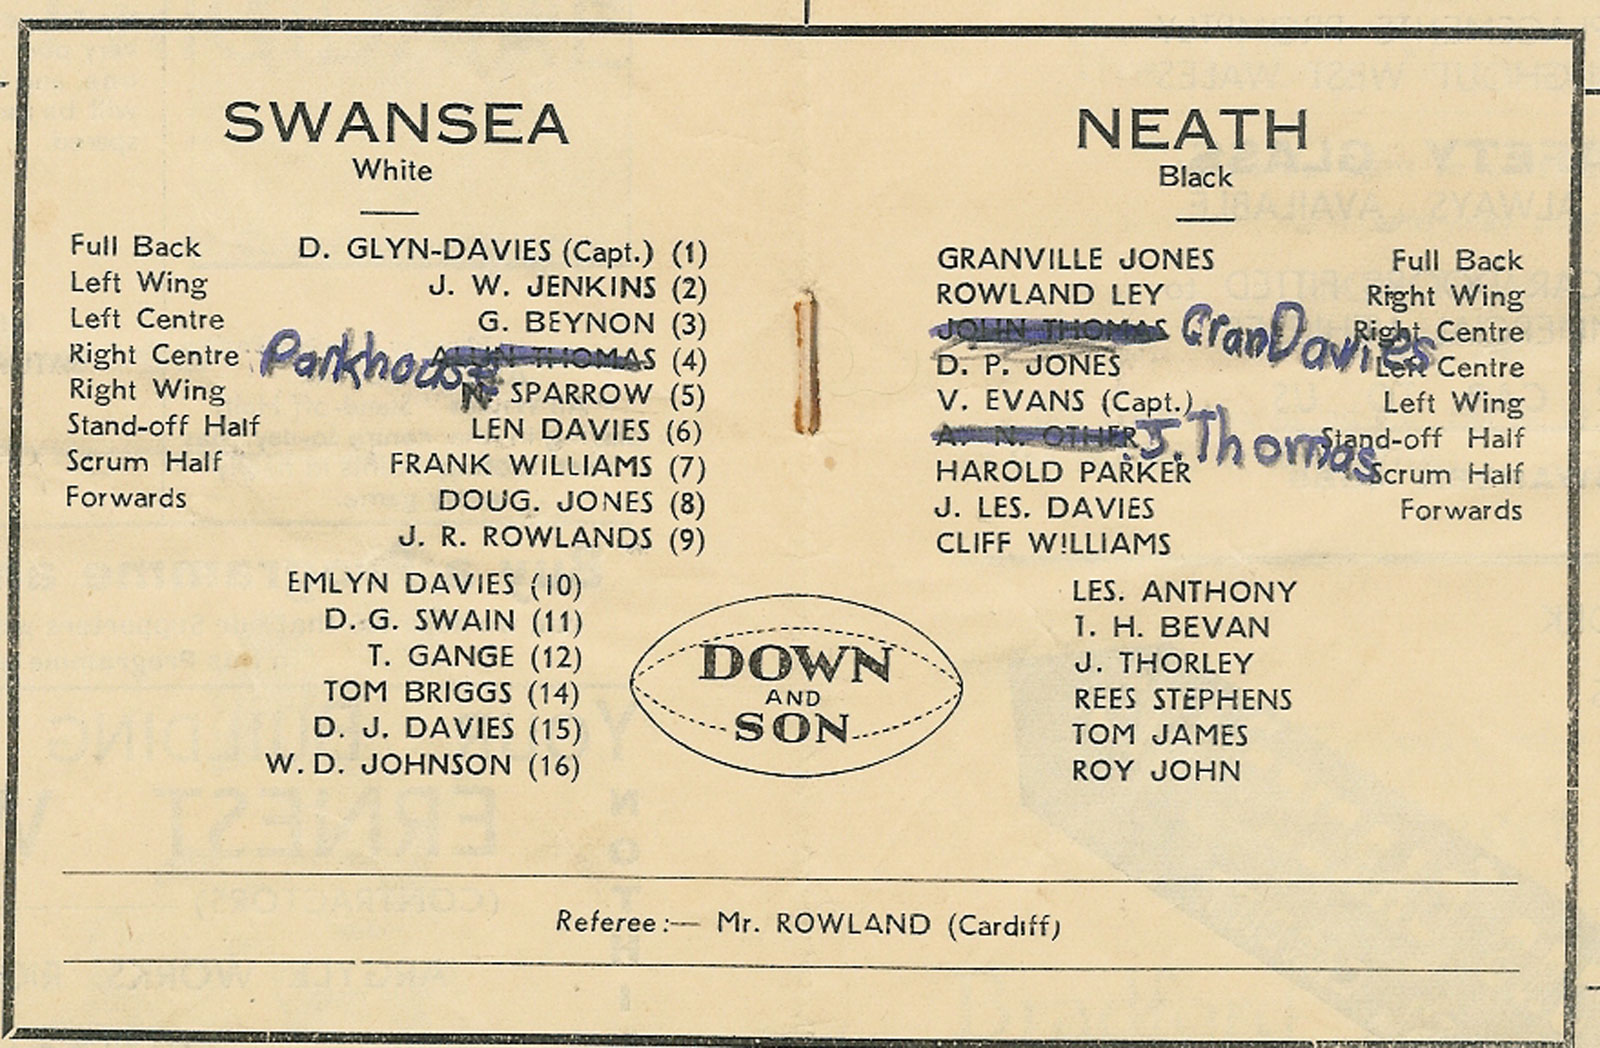 SWANSEA
White
Full Back D. GLYN-DAVIES (Capt.) (1)
Left Wing J. W. JENKINS (2)
Left Centre G. BEYNON (3)
Right Centre Parkhouse THOMAS (4)
Right Wing N. SPARROW (5)
Stand-off Half LEN DAVIES (6)
Scrum Half FRANK WILLIAMS (7)
Forwards DOUG. JONES (8)
J. R. ROWLANDS (9)
EMLYN DAVIES (10)
D. G. SWAIN (11)
T. GANGE (12)
TOM BRIGGS (14)
D. J. DAVIES (15)
W. D. JOHNSON (16)
DOWN
AND
SON
NEATH
Black
GRANVILLE JONES Full Back
ROWLAND LEY Right Wing
JOHN THOMAS Gran Davies Right Centre
D. P. JONES Left Centre
V. EVANS (Capt.) Left Wing
A. N. OTHER J. Thomas Stand-off Half
HAROLD PARKER Scrum Half
J. LES. DAVIES Forwards
CLIFF WILLIAMS
LES. ANTHONY
I. H. BEVAN
J. THORLEY
REES STEPHENS
TOM JAMES
ROY JOHN
Referee :— Mr. ROWLAND (Cardiff)